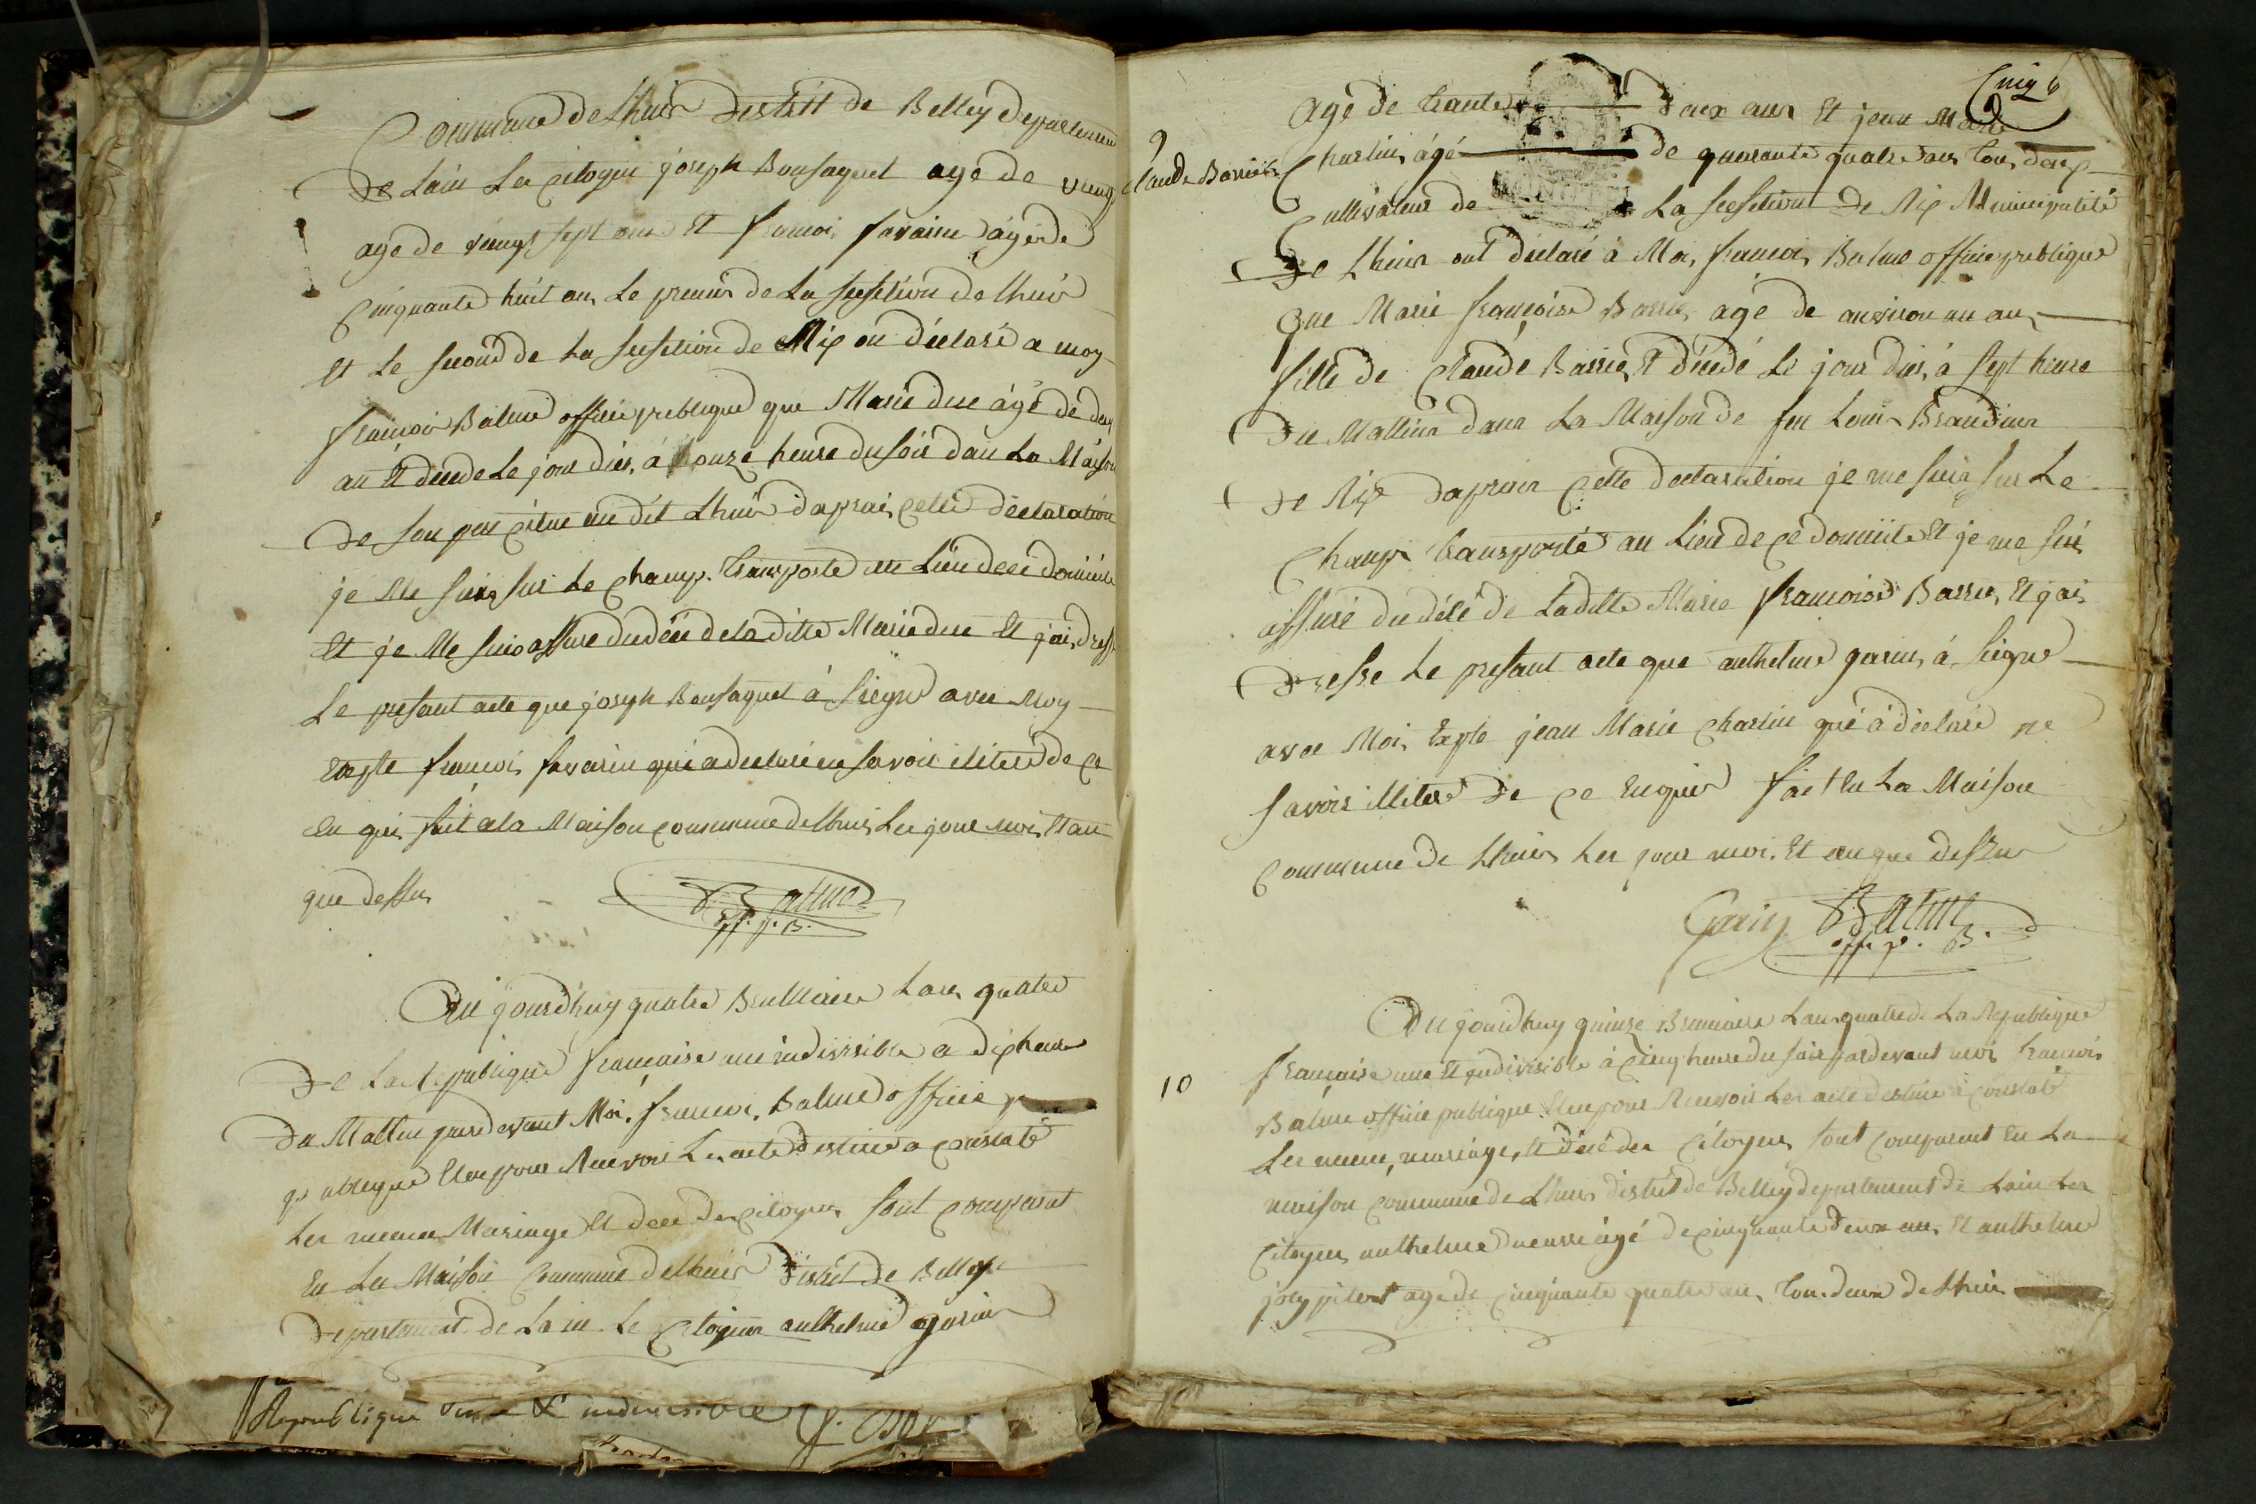 Commune de Lhuis District de Belley Departement
De Lain Les citoyen joseph Bonfaquet age de vingt
age de vingt sept ans Et francoi favarin âgé de
Cinquante huit an Le premier de La secsetion de lhuis
Et Le second de La secsetion de Rix on déclaré a moy
francoi Balme officie publique que Marie duc âgé de deux
an Et décede Le jour dier à honze heure du soir dans La Maison
De son per citue au dit Lhuis daprai cette déclaration
je Me suis sur Le champ transporté au Lieu de ce domicile
Et je Me suis assuré du décé de la ditte Marie duc Et jai dressé
Le present acte que joseph Bonfaquet à siegné avec Moy
Exepte francoi favarin qui a declaré ne savoir éliteré de ce
En qui fait a la Maison commune de lhuis Les jour moi Et an
que dessus
Balme
off. p. B.
Au jourdhuy quatre Brumaire Lan quatre
De La Republique francaise une indivisible a dix heure
Du Mattin pardevant Moi francoi Balme officie
publique Elu pour Recevoir Les acte destiné a constaté
Les nence Mariage Et décé des citoyen sont comparut
En La Maison Commune de lhuis District de Belley
Departement de Lain Le citoyen anthelme garin
Republique une & indivisible
Cinq 6
9
Claude Barrié
Agé de trante deux ans Et jean Marie
Charlin âgé de quarante quatre ans tous deux
Cultivateur de La secsetion De Rix Municipalité
De Lhuis ont déclaré à Moi francoi Balme officie publique
que Marie francoise Barrié agé de anviron un an
fille de Claude Barrié Et décédé Le jour dier à sept heure
Du Mattin dans La Maison de feu Louis Brandin
De Rix daprier cette declaration je me suis sur Le
Champ transporté au Lieu de ce domicile Et je me suis
assuré du décé de Laditte Marie francoise Barrié Et jai
Dressé Le presant acte que anthelme garin à siegné
avec Moi Exepte jean Marie Charlin qui à déclaré ne
savoir illiteré De ce Enquis fait En La Maison
Commune de Lhuis Les jour moi Et an que dessus
Garin Balme
off. p. B.
10
Au jourdhuy quinze Brumaire Lan quatre de La Republique
francaise une Et indivisible à cinq heure du soir pardevant moi francoi
Balme officie publique Elu pour Recevoir Les acte destiné à constaté
Les nence, mariage, Et décé des Citoyen sont comparut En La
maison Commune de Lhuis district de Belley departement de Lain Les
Citoyen anthelme âgé de cinquante deux an Et anthelme
agé de cinquante quatre an tous deux de Lhuis